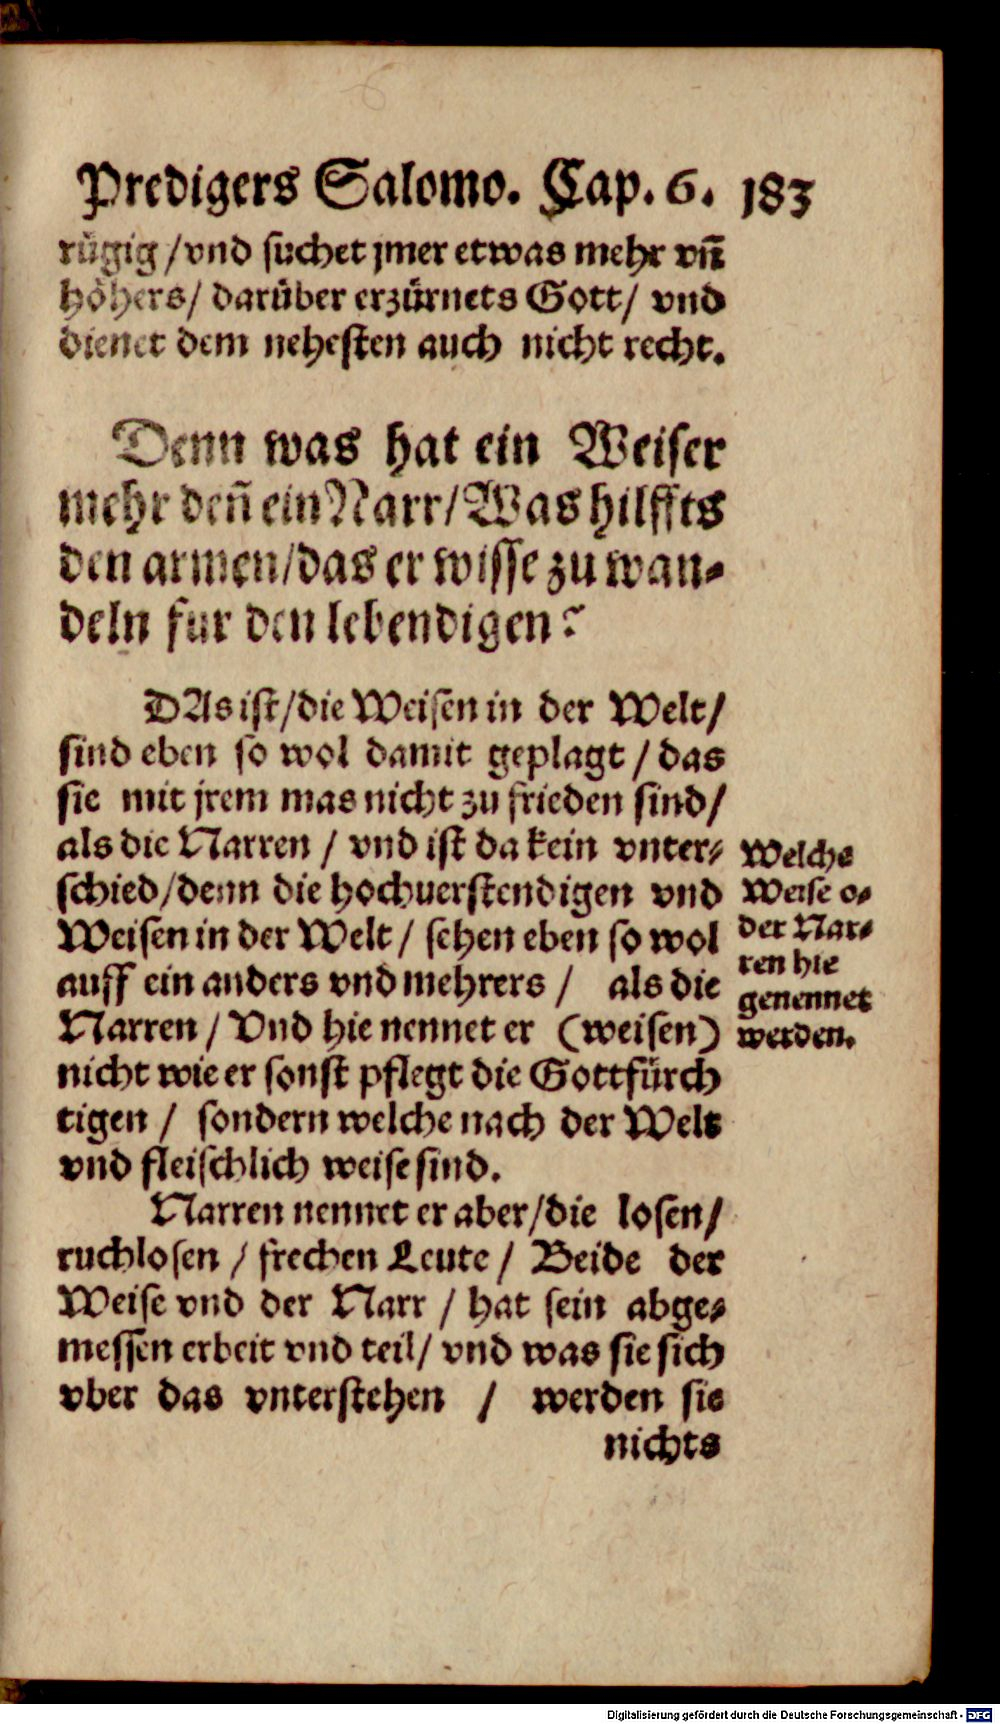 Predigers Salomo. Cap. 6. 183
rügig /vnd suchet jmer etwas mehr vñ
höhers/ darüber erzürnets Gott/ vnd
dienet dem nehesten auch nicht recht.
Denn was hat ein Weiser
mehr deñ ein Narr/Was hilffts
den armen/das er wisse zu wan-
deln fur den lebendigen?
DAs ist/die Weisen in der Welt/
sind eben so wol damit geplagt / das
sie mit jrem mas nicht zu frieden sind/
als die Narren / vnd ist da kein vnter-
schied/denn die hochuerstendigen vnd
Weisen in der Welt / sehen eben so wol
auff ein anders vnd mehrers / als die
Narren / Vnd hie nennet er (weisen)
nicht wie er sonst pflegt die Gottfürch
tigen / sondern welche nach der Welt
vnd fleischlich weise sind.
Narren nennet er aber/die losen/
ruchlosen / frechen Leute / Beide der
Weise vnd der Narr / hat sein abge-
messen erbeit vnd teil/ vnd was sie sich
vber das vnterstehen / werden sie
nichts
Welche
Weise o-
der Nar-
ren hie
genennet
werden.
Digitalisierung gefördert durch die Deutsche Forschungsgemeinschaft - DFG